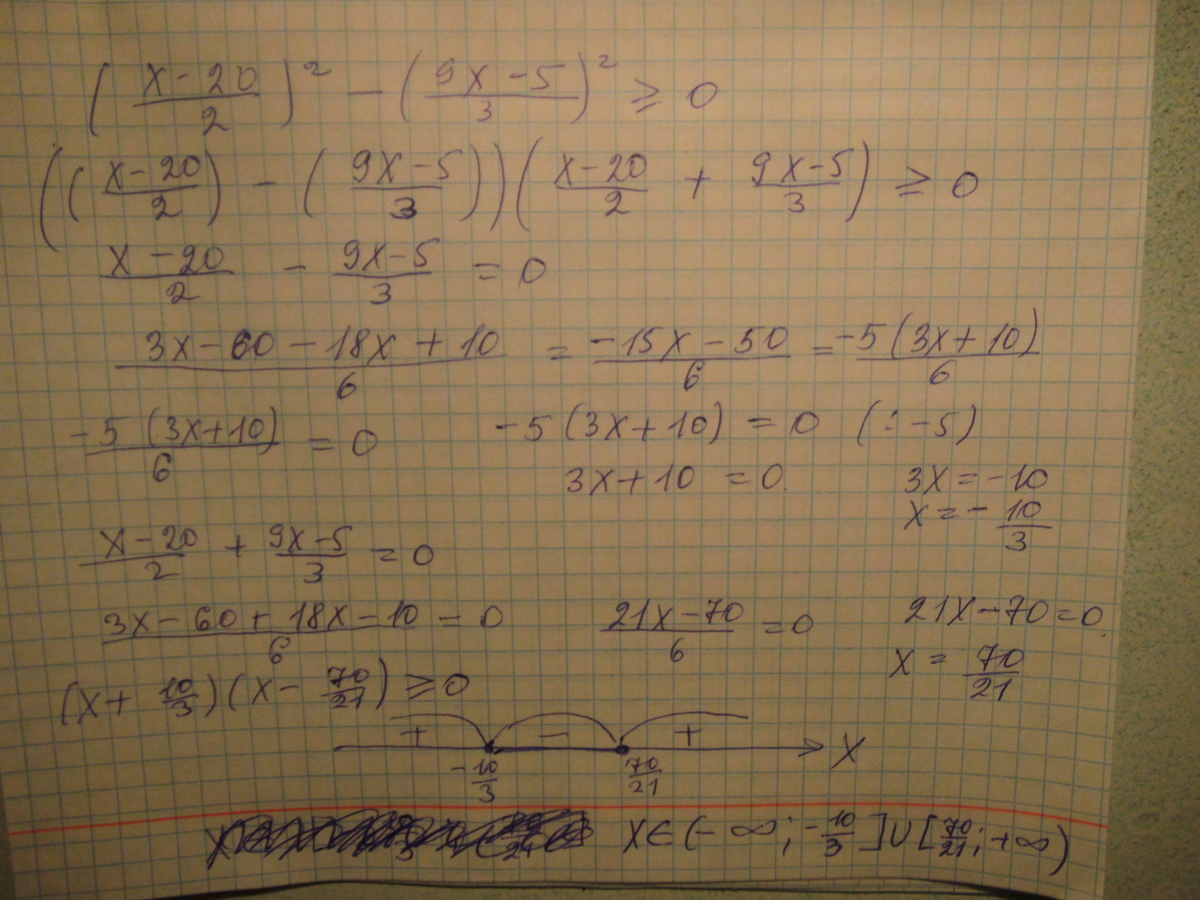 (x-20/2)² - (9x-5/3)² ≥ 0
((x-20/2) - (9x-5/3))(x-20/2 + 9x-5/3) ≥ 0
x-20/2 - 9x-5/3 = 0
3x-60-18x+10/6 = -15x-50/6 = -5(3x+10)/6
-5(3x+10)/6 = 0 -5(3x+10) = 0 (: -5)
3x+10 = 0. 3x = -10
x = -10/3
x-20/2 + 9x-5/3 = 0
3x-60+18x-10/6 = 0 21x-70/6 = 0 21x-70=0.
x = 70/21
(x+10/3)(x-70/21) ≥ 0
+ - + x
-10/3 70/21
x∈(-∞; -10/3]∪[70/21; +∞)